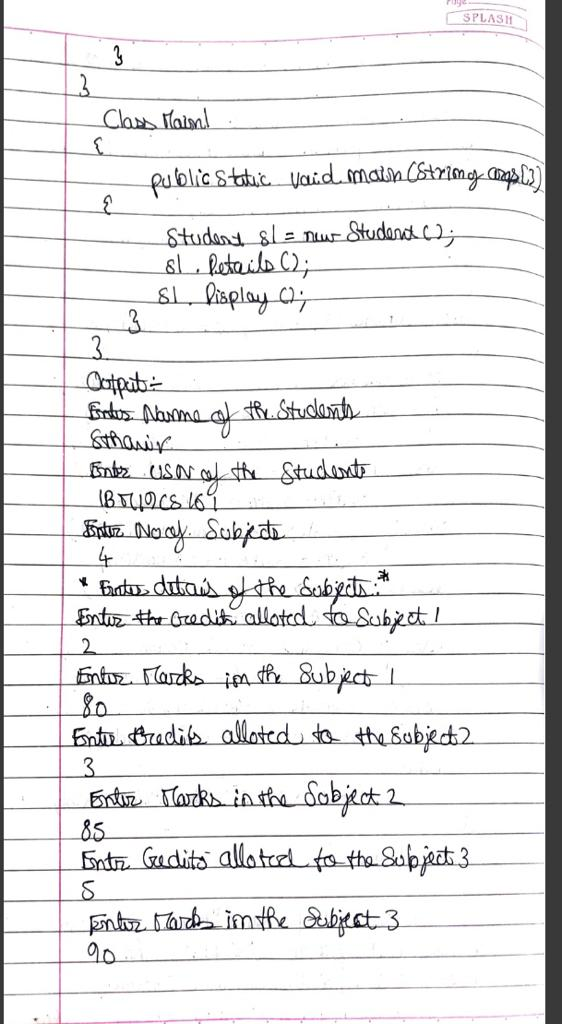 Page
SPLASH
}
}
Class Main1
{
public static void main (String args[])
{
Student s1 = new Student ();
s1 . Details ();
s1 . Display ();
}
}
Output:-
Enter Name of the Students
Enter USN of the Students
Enter No of Subjects
4
* Enter details of the Subjects :*
Enter the Credits alloted to Subject 1
2
Enter Marks in the Subject 1
80
Enter Credits alloted to the Subject 2
3
Enter Marks in the Subject 2
85
Enter Credits alloted to the Subject 3
5
Enter Marks in the Subject 3
90